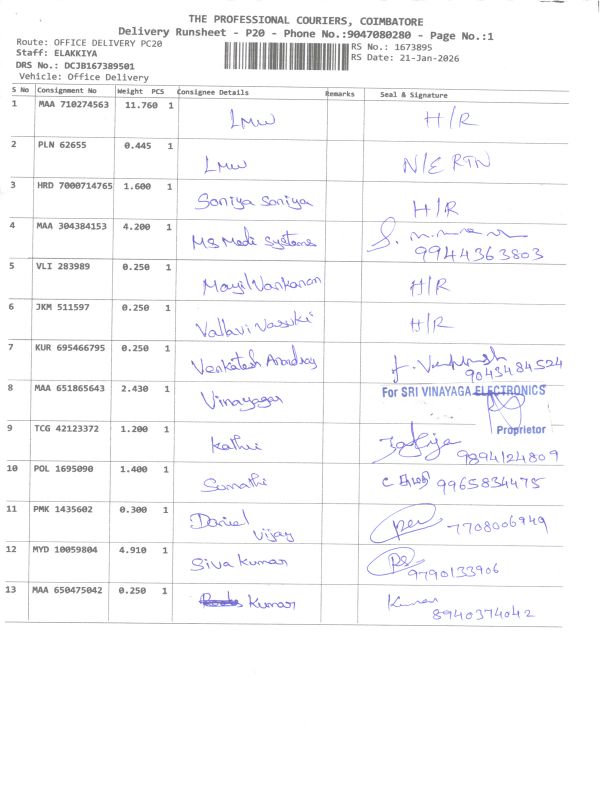 THE PROFESSIONAL COURIERS, COIMBATORE
Delivery Runsheet - P20 - Phone No.:9047080280 - Page No.:1
Route: OFFICE DELIVERY PC20
Staff: ELAKKIYA
DRS No.: DCJB167389501
Vehicle: Office Delivery
RS No.: 1673895
RS Date: 21-Jan-2026
S No Consignment No Weight PCS Consignee Details Remarks Seal & Signature
1 MAA 710274563 11.760 1 LMW H/R
2 PLN 62655 0.445 1 LMW N/E RTN
3 HRD 7000714765 1.600 1 Soniya Soniya H/R
4 MAA 304384153 4.200 1 MS Medi Systems
9944363803
5 VLI 283989 0.250 1 Mayil Vankanan H/R
6 JKM 511597 0.250 1 Vallavi Vasuki H/R
7 KUR 695466795 0.250 1 Venkatesh
9043484524
8 MAA 651865643 2.430 1 Vinayagar For SRI VINAYAGA ELECTRONICS
Proprietor
9 TCG 42123372 1.200 1 Kathii
9894124809
10 POL 1695090 1.400 1 Sumathi 9965834475
11 PMK 1435602 0.300 1 Daniel
Vijay 7708006949
12 MYD 10059804 4.910 1 Siva Kumar
9790133906
13 MAA 650475042 0.250 1 Kumar Kumar
8940374042